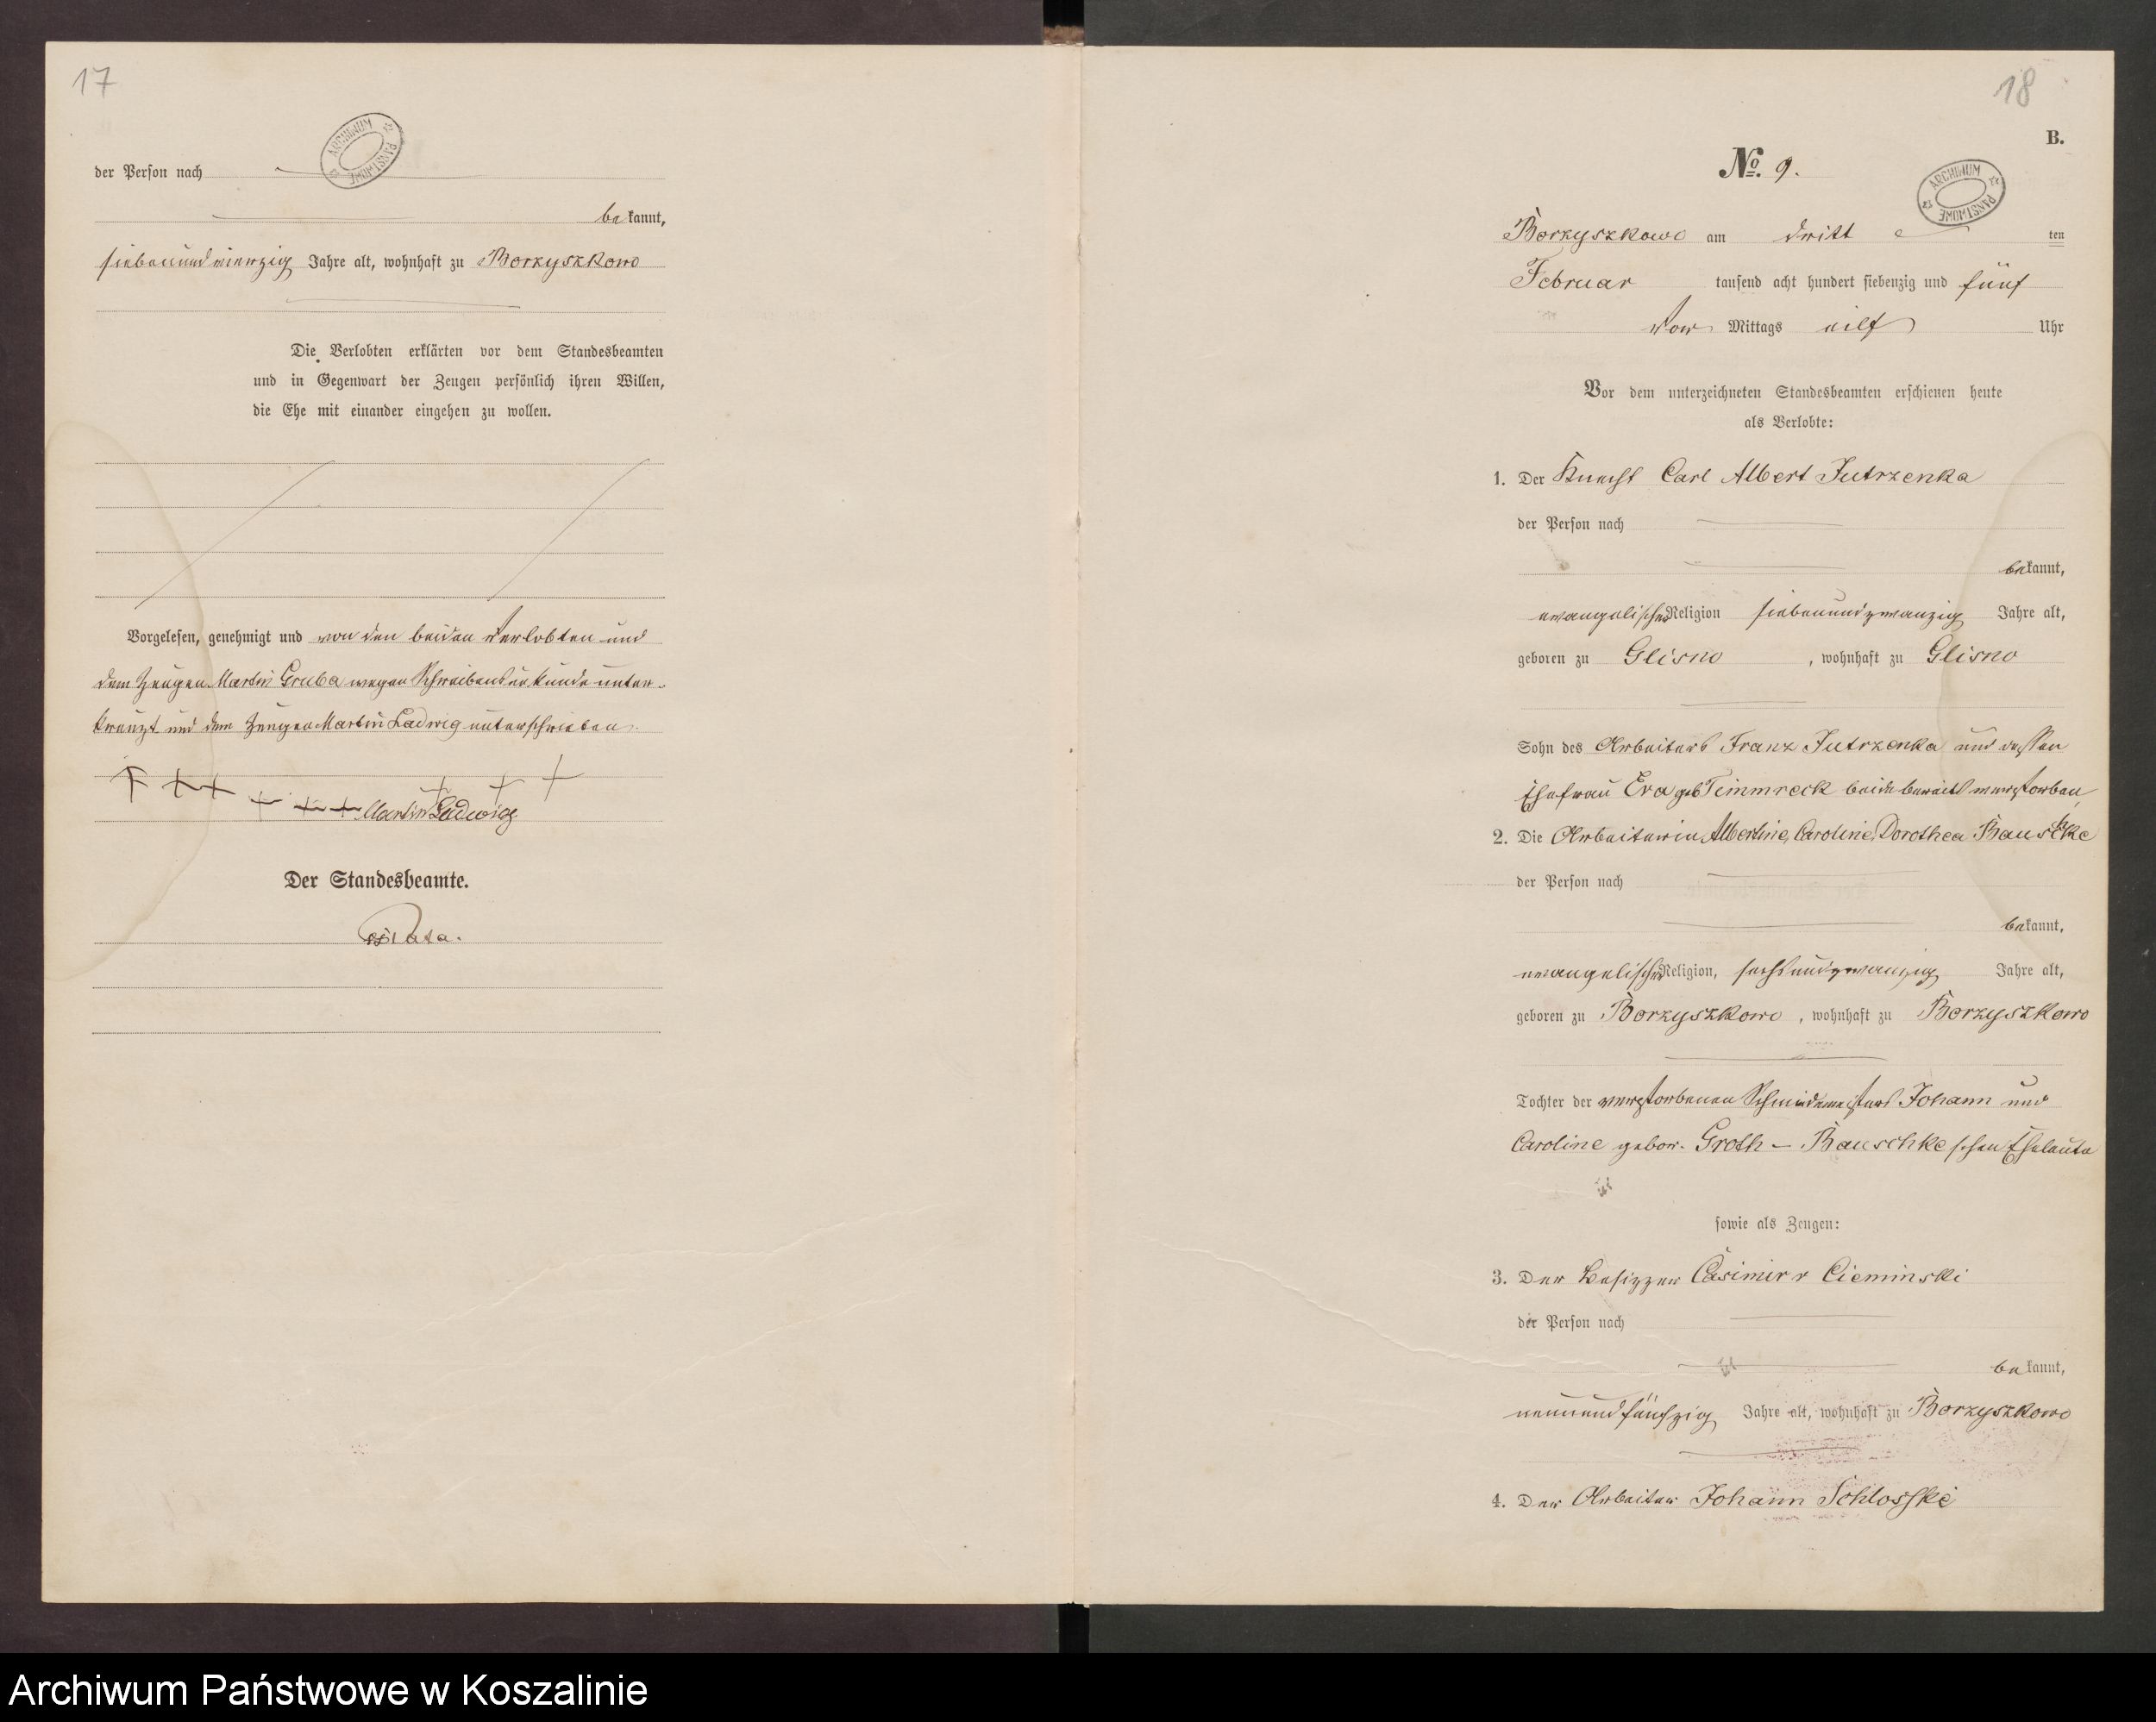 17
ARCHIWUM PAŃSTWOWE
der Person nach
bekannt,
siebenundvierzig Jahre alt, wohnhaft zu Borzyszkowo
Die Verlobten erklärten vor dem Standesbeamten
und in Gegenwart der Zeugen persönlich ihren Willen,
die Ehe mit einander eingehen zu wollen.
Vorgelesen, genehmigt und von den beiden Verlobten und
dem Zeugen Martin Gruba wegen Schreibensunkunde unter-
kreuzt und dem Zeugen Martin Ladwig unterschrieben.
+ + + + + + + + +
Martin Ladwig
Der Standesbeamte.
18
B.
No. 9.
ARCHIWUM PAŃSTWOWE
Borzyszkowo am dritt e ten
Februar tausend acht hundert siebenzig und fünf
Vor Mittags eilf Uhr
Vor dem unterzeichneten Standesbeamten erschienen heute
als Verlobte:
1. Der Knecht Carl Albert Jutrzenka
der Person nach
bekannt,
evangelischer Religion siebenundzwanzig Jahre alt,
geboren zu Glisno, wohnhaft zu Glisno
Sohn des Arbeiters Franz Jutrzenka und dessen
Ehefrau Eva geb Timmreck beide bereits verstorben
2. Die Arbeiterin Albertine, Caroline, Dorothea Bauschke
der Person nach
bekannt,
evangelischer Religion, sechsundzwanzig Jahre alt,
geboren zu Borzyszkowo, wohnhaft zu Borzyszkowo
Tochter der verstorbenen Schmidemeisters Johann und
Caroline gebor. Groth – Bauschke schen Eheleute
sowie als Zeugen:
3. Der Besizzer Casimirr Cieminski
der Person nach
bekannt,
neunundfünfzig Jahre alt, wohnhaft zu Borzyszkowo
4. Der Arbeiter Johann Schlosske
Archiwum Państwowe w Koszalinie